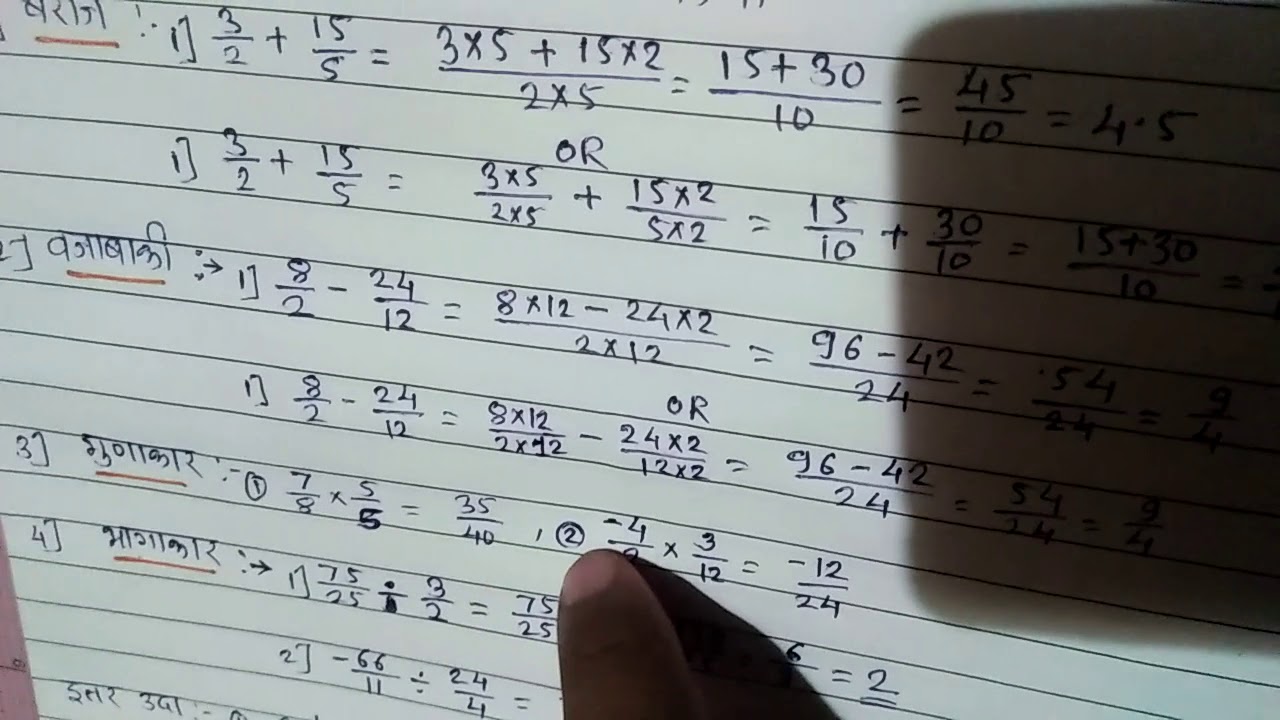 1] 3/2 + 15/5 = (3×5 + 15×2)/(2×5) = (15+30)/10 = 45/10 = 4.5
OR
1] 3/2 + 15/5 = (3×5)/(2×5) + (15×2)/(5×2) = 15/10 + 30/10 = (15+30)/10 =
2] वजाबाकी :→ 1] 8/2 - 24/12 = (8×12 - 24×2)/(2×12) = (96-42)/24 = 54/24 = 9/4
OR
1] 8/2 - 24/12 = (8×12)/(2×12) - (24×2)/(12×2) = (96-42)/24 = 54/24 = 9/4
3] गुणाकार :- ① 7/8 × 5/5 = 35/40 , ② -4/ × 3/12 = -12/24
4] भागाकार :→ 1] 75/25 ÷ 3/2 = 75/25 = 2
2] -66/11 ÷ 24/4 =
इतर उदा :-